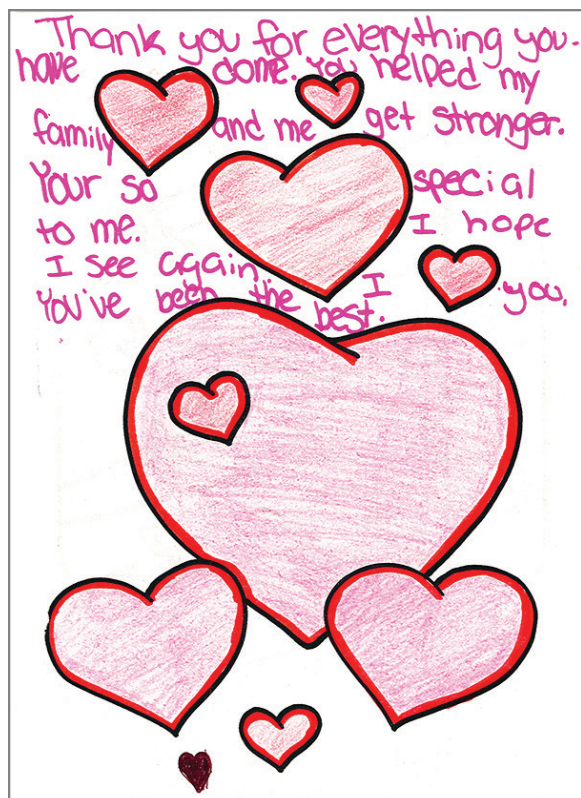 Thank you for everything you-
have done. You helped my
family and me get stronger.
Your so special
to me. I hope
I see again. I you.
You've been the best.